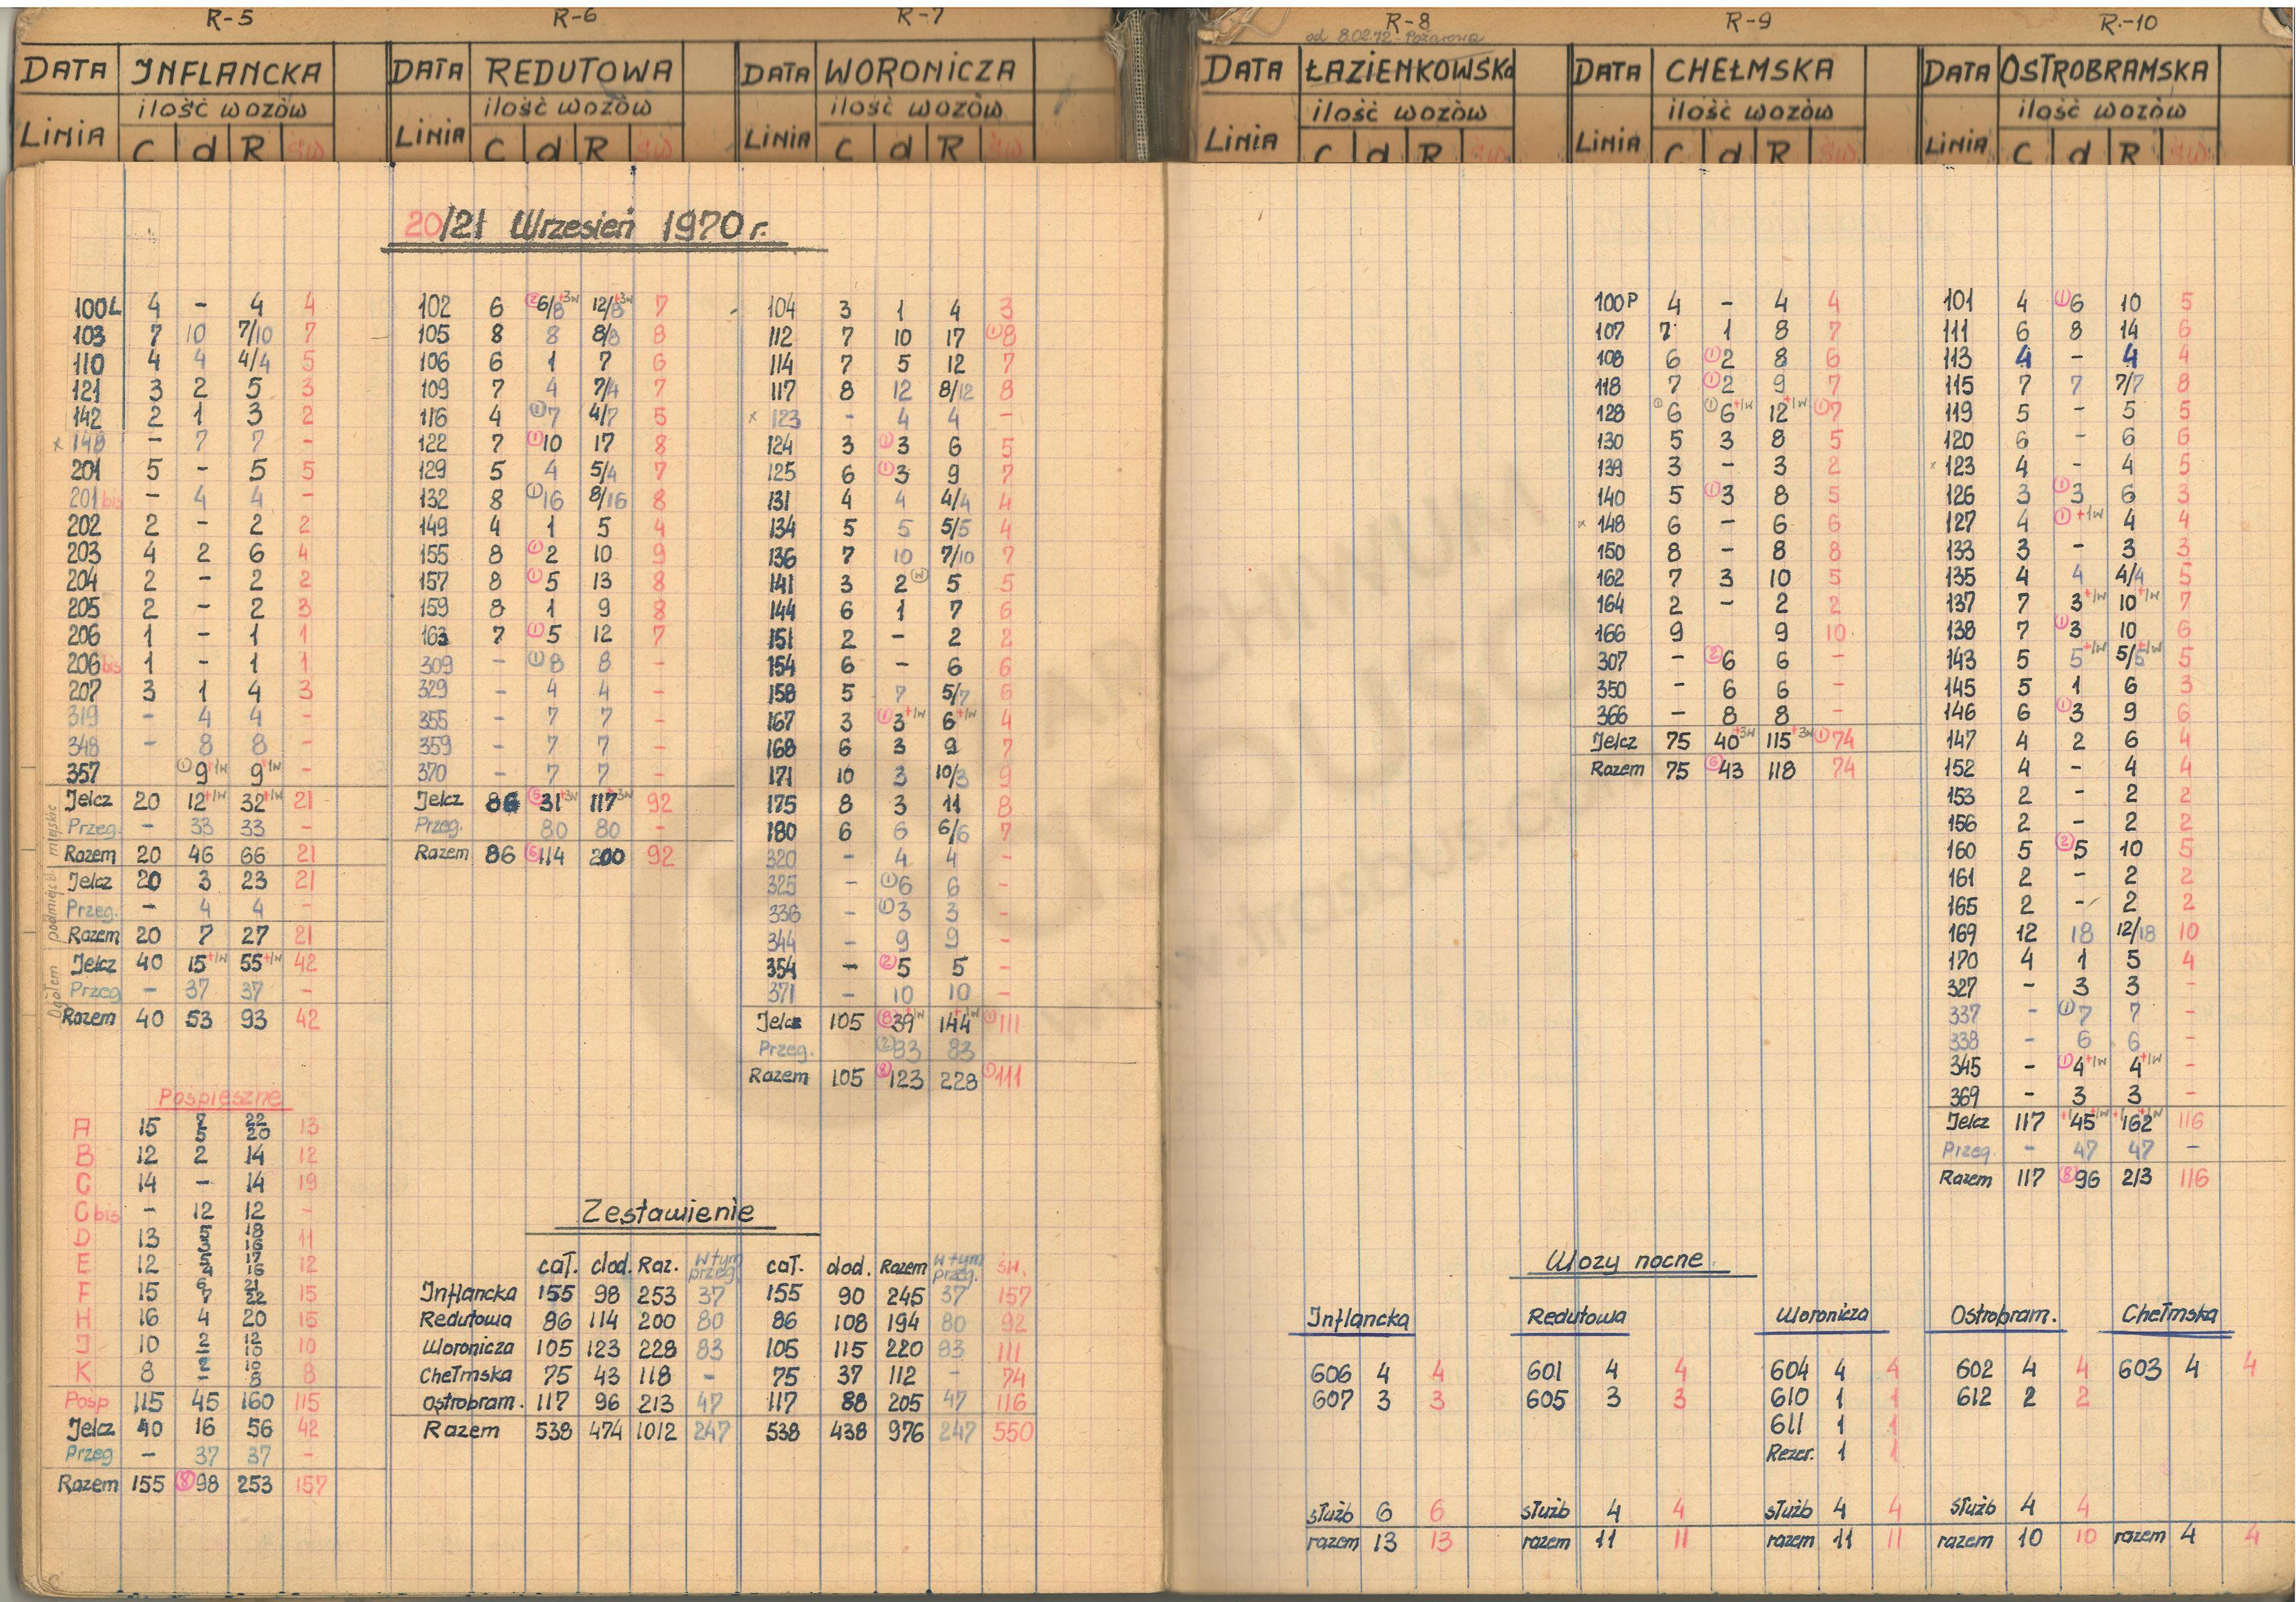 R-5 R-6 R-7 R-8 R-9 R.-10
od 8.02.72 - Pożarowa
DATA INFLANCKA
ilość wozów
LINIA C d R św
DATA REDUTOWA
ilość wozów
LINIA C d R św
DATA WORONICZA
ilość wozów
LINIA C d R św
DATA ŁAZIENKOWSKA
ilość wozów
LINIA C d R św
DATA CHEŁMSKA
ilość wozów
LINIA C d R św
DATA OSTROBRAMSKA
ilość wozów
LINIA C d R św
20/21 Wrzesień 1970 r.
100L 4 - 4 4
103 7 10 7/10 7
110 4 4 4/4 5
121 3 2 5 3
142 2 1 3 2
x 148 - 7 7 -
201 5 - 5 5
201bis - 4 4 -
202 2 - 2 2
203 4 2 6 4
204 2 - 2 2
205 2 - 2 3
206 1 - 1 1
206bis 1 - 1 1
207 3 1 4 3
319 - 4 4 -
348 - 8 8 -
357 (1)9+1w 9+1w -
Ogółem podmiejsk. miejskie
Jelcz 20 12+1w 32+1w 21
Przeg. - 33 33 -
Razem 20 46 66 21
Jelcz 20 3 23 21
Przeg. - 4 4 -
Razem 20 7 27 21
Jelcz 40 15+1w 55+1w 42
Przeg - 37 37 -
Razem 40 53 93 42
Pośpieszne
A 15 7 5 22 20 13
B 12 2 14 12
C 14 - 14 19
C bis - 12 12 -
D 13 5 3 18 16 11
E 12 5 4 17 16 12
F 15 6 7 21 22 15
H 16 4 20 15
J 10 2 - 12 10 10
K 8 2 - 10 8 8
Posp 115 45 160 115
Jelcz 40 16 56 42
Przeg - 37 37 -
Razem 155 (8)98 253 157
102 6 (2)6/8+3w 12/8+3w 7
105 8 8 8/8 8
106 6 1 7 6
109 7 4 7/4 7
116 4 (1)7 4/7 5
122 7 (1)10 17 8
129 5 4 5/4 7
132 8 (1)16 8/16 8
149 4 1 5 4
155 8 (1)2 10 9
157 8 (1)5 13 8
159 8 1 9 8
163 7 (1)5 12 7
309 - (1)8 8 -
329 - 4 4 -
355 - 7 7 -
359 - 7 7 -
370 - 7 7 -
Jelcz 86 (6)31+3w 117+3w 92
Przeg. 80 80 -
Razem 86 (6)114 200 92
104 3 1 4 3
112 7 10 17 (1)8
114 7 5 12 7
117 8 12 8/12 8
x 123 - 4 4 -
124 3 (1)3 6 5
125 6 (1)3 9 7
131 4 4 4/4 4
134 5 5 5/5 4
136 7 10 7/10 7
141 3 2(w) 5 5
144 6 1 7 6
151 2 - 2 2
154 6 - 6 6
158 5 7 5/7 6
167 3 (1)3+1w 6+1w 4
168 6 3 9 7
171 10 3 10/3 9
175 8 3 11 8
180 6 6 6/6 7
320 - 4 4 -
325 - (1)6 6 -
336 - (1)3 3 -
344 - 9 9 -
354 - (2)5 5 -
371 - 10 10 -
Jelcz 105 (8)39+1w 144+1w (1)111
Przeg. (2)83 83
Razem 105 (8)123 228 (1)111
Zestawienie
cał. dod. Raz. w tym przeg. cał. dod. Razem w tym przeg. św.
Inflancka 155 98 253 37 155 90 245 37 157
Redutowa 86 114 200 80 86 108 194 80 92
Woronicza 105 123 228 83 105 115 220 83 111
Chełmska 75 43 118 - 75 37 112 - 74
Ostrobram. 117 96 213 47 117 88 205 47 116
Razem 538 474 1012 247 538 438 976 247 550
100P 4 - 4 4
107 7 1 8 7
108 6 (1)2 8 6
118 7 (1)2 9 7
128 (1)6 (1)6+1w 12+1w (1)7
130 5 3 8 5
139 3 - 3 2
140 5 (1)3 8 5
x 148 6 - 6 6
150 8 - 8 8
162 7 3 10 5
164 2 - 2 2
166 9 9 10
307 - (2)6 6 -
350 - 6 6 -
366 - 8 8 -
Jelcz 75 40+3w 115+3w (1)74
Razem 75 (6)43 118 74
101 4 (1)6 10 5
111 6 8 14 6
113 4 - 4 4
115 7 7 7/7 8
119 5 - 5 5
120 6 - 6 6
x 123 4 - 4 5
126 3 (1)3 6 3
127 4 (1)+1w 4 4
133 3 - 3 3
135 4 4 4/4 5
137 7 3+1w 10+1w 7
138 7 (1)3 10 6
143 5 5+1w 5/5+1w 5
145 5 1 6 3
146 6 (1)3 9 6
147 4 2 6 4
152 4 - 4 4
153 2 - 2 2
156 2 - 2 2
160 5 (2)5 10 5
161 2 - 2 2
165 2 - 2 2
169 12 18 12/18 10
170 4 1 5 4
327 - 3 3 -
337 - (1)7 7 -
338 - 6 6 -
345 - (1)4+1w 4+1w -
369 - 3 3 -
Jelcz 117 45+1w 162+1w 116
Przeg. - 47 47 -
Razem 117 (8)96 213 116
Wozy nocne
Inflancka Redutowa Woronicza Ostrobram. Chełmska
606 4 4 601 4 4 604 4 4 602 4 4 603 4 4
607 3 3 605 3 3 610 1 1 612 2 2
611 1 1
Rezer. 1 1
służb 6 6 służb 4 4 służb 4 4 służb 4 4
razem 13 13 razem 11 11 razem 11 11 razem 10 10 razem 4 4